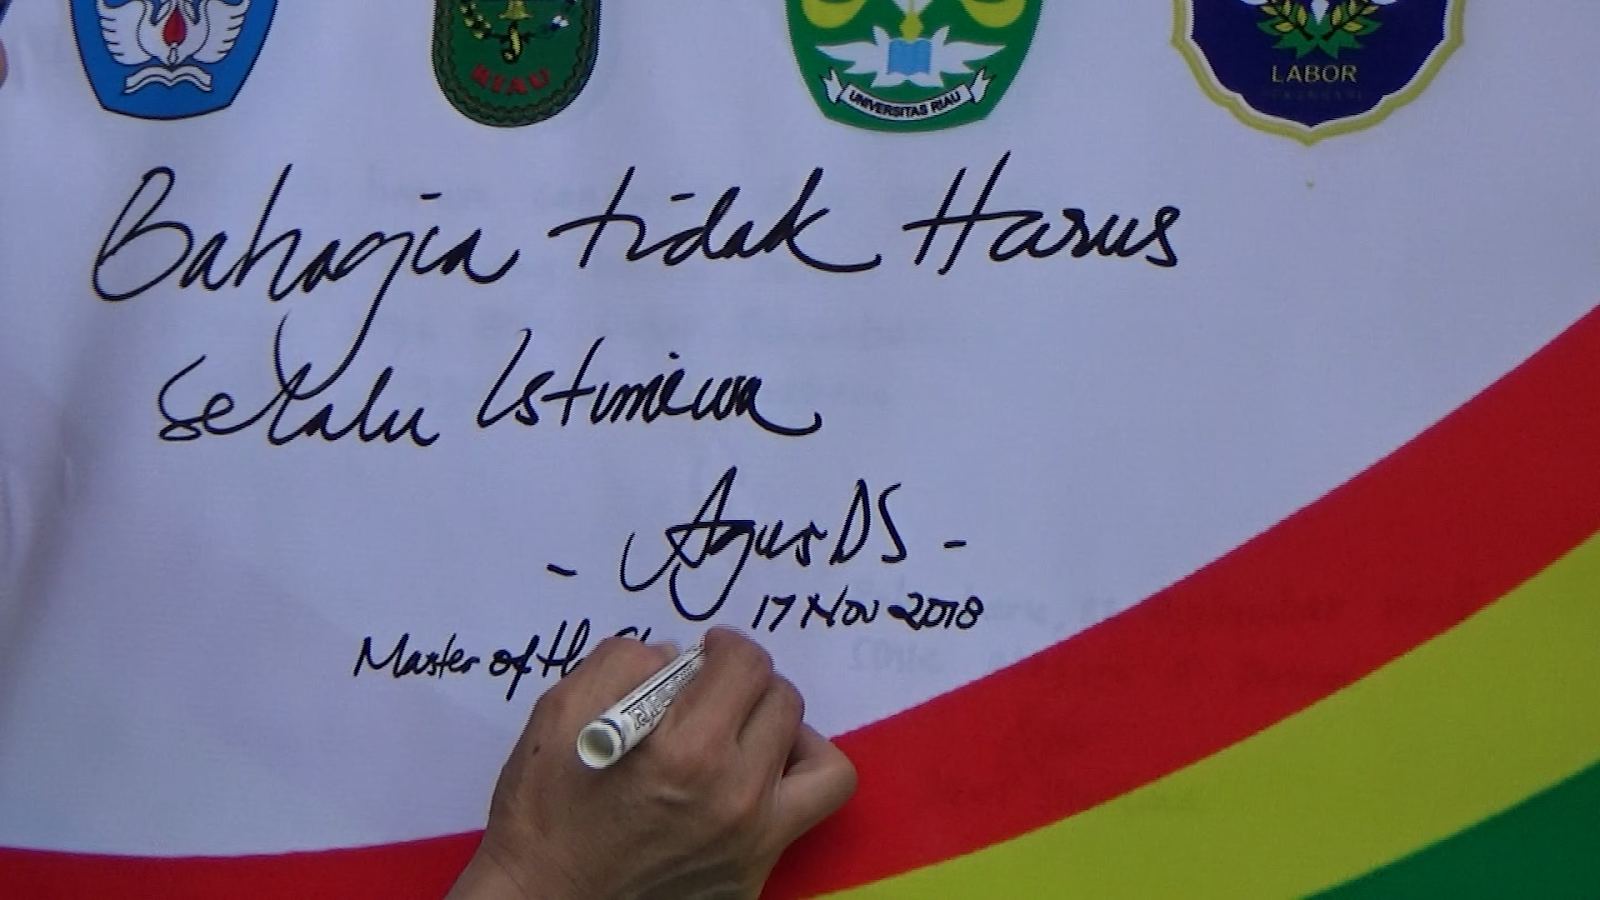 RIAU
UNIVERSITAS RIAU
LABOR
Bahagia tidak Harus
Selalu Istimewa
- Agus DS -
17 Nov 2018
Master of